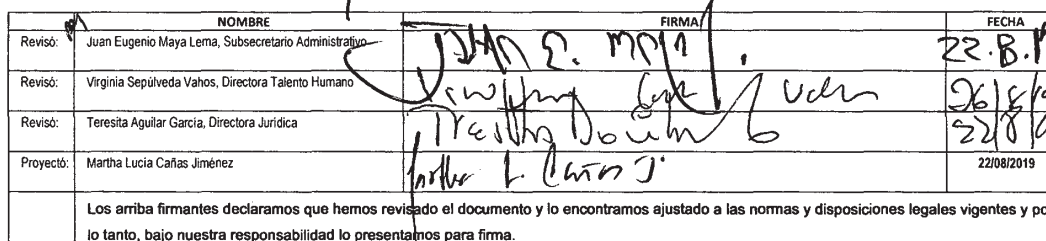 NOMBRE FIRMA FECHA
Revisó: Juan Eugenio Maya Lema, Subsecretario Administrativo
Revisó: Virginia Sepúlveda Vahos, Directora Talento Humano
Revisó: Teresita Aguilar García, Directora Jurídica
Proyectó: Martha Lucía Cañas Jiménez 22/08/2019
Los arriba firmantes declaramos que hemos revisado el documento y lo encontramos ajustado a las normas y disposiciones legales vigentes y po
lo tanto, bajo nuestra responsabilidad lo presentamos para firma.